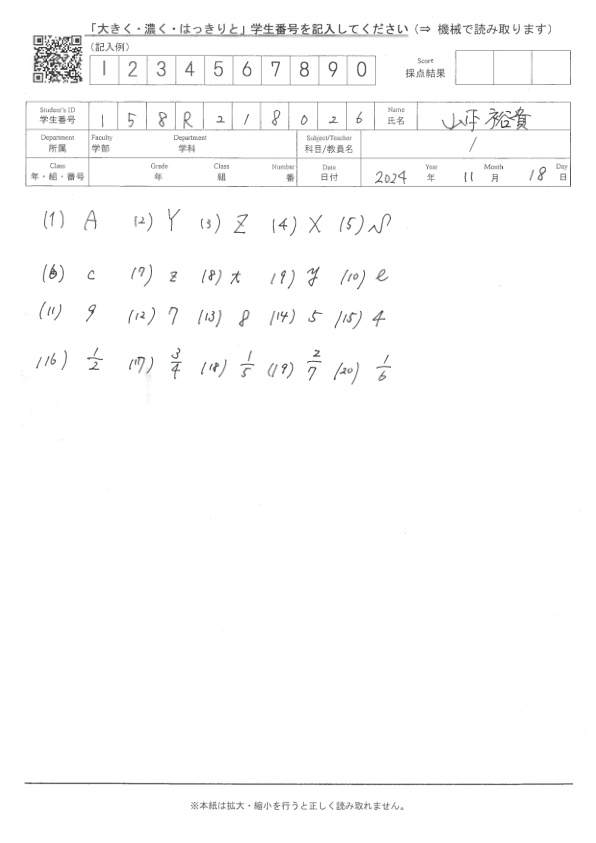 「大きく・濃く・はっきりと」学生番号を記入してください（⇒ 機械で読み取ります）
（記入例）
1 2 3 4 5 6 7 8 9 0
Score
採点結果
Student's ID
学生番号
1 5 8 R 2 1 8 0 2 6
Name
氏名
山平 裕貴
Department
所属
Faculty
学部
Department
学科
Subject/Teacher
科目/教員名
/
Class
年・組・番号
Grade
年
Class
組
Number
番
Date
日付
2024
Year
年
11
Month
月
18
Day
日
(1) A (2) Y (3) Z (4) X (5)
(6) c (7) z (8) t (9) y (10) e
(11) 9 (12) 7 (13) 8 (14) 5 (15) 4
(16) 1/2 (17) 3/4 (18) 1/5 (19) 2/7 (20) 1/6
※本紙は拡大・縮小を行うと正しく読み取れません。